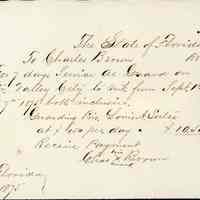 The State of Florida
To Charles Brown
7 days Service as Guard on
Valley City to wit from Sept 1st
7th 1875 both inclusive.
Guarding
at $1.50 per day. $10.50
Receive Payment
his
Chas X Brown
mark
Florida
1875